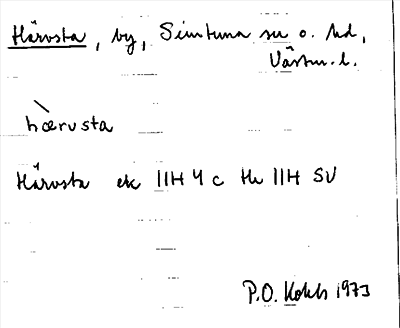 Härvsta, by, Simtuna sn o. hd,
Västm. l.
hærvsta
Härvsta ek 11H 4 c Hr 11H SV
P.O. 1973